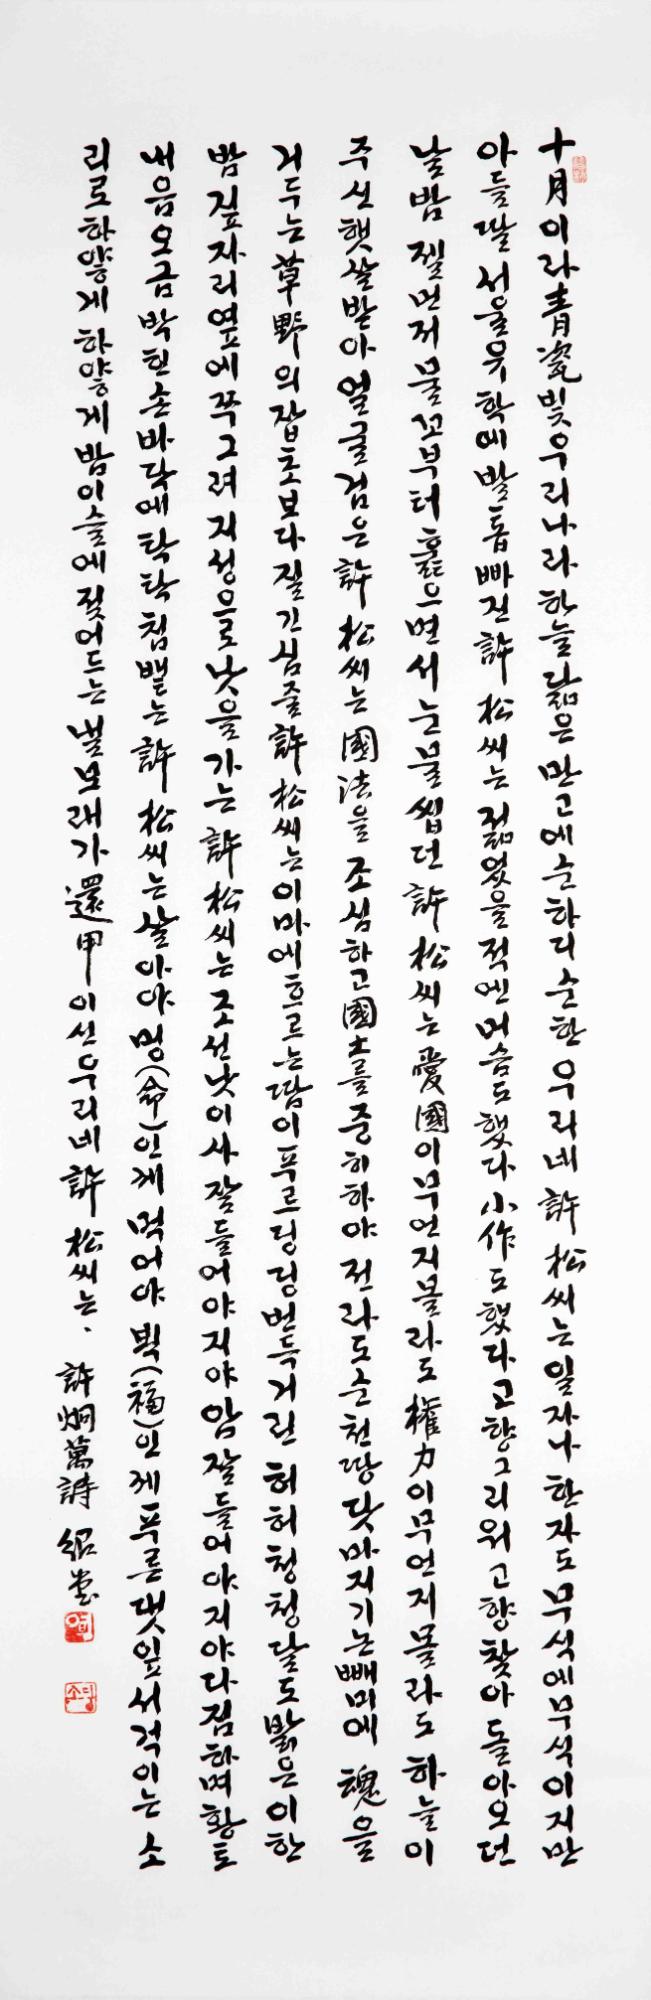 十月이라 靑瓷빛 우리나라 하늘 닮은 만고에 순하디 순한 우리네 許松씨는 일자나 한자도 무식에 무식이지만
아들딸 서울유학에 발톱 빠진 許松씨는 젊었을 적엔 머슴도 했다 小作도 했다 고향 그리워 고향 찾아 돌아오던
날밤 젤 먼저 물꼬부터 훑으면서 눈물 씹던 許松씨는 愛國이 무언지 몰라도 權力이 무언지 몰라도 하늘이
주신 햇살 받아 얼굴 검은 許松씨는 國法을 조심하고 國土를 중히 하야 전라도 순천 땅 닷마지기 논빼미에 魂을
거두는 草野의 잡초보다 질긴 심줄 許松씨는 이마에 흐르는 땀이 푸르딩딩 번득거린 허허청청 달도 밝은 이 한
밤 짚자리 옆에 쭈그려 지성으로 낫을 가는 許松씨는 조선낫이사 잘 들어야지야 암 잘 들어야지야 다짐하며 황토
내음 오금 박힌 손바닥에 탁탁 침 뱉는 許松씨는 살아야 멩(命)인게 먹어야 뵉(福)인게 푸른 댓잎 서걱이는 소
리로 하얗게 하얗게 밤이슬에 젖어드는 낼모래가 還甲이신 우리네 許松씨는、 許炯萬詩 紹堂